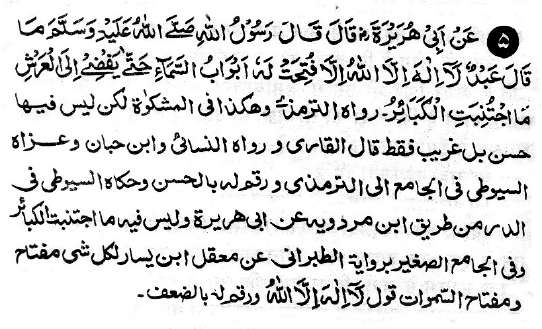 ۵ عَنْ اَبِیْ هُرَیْرَةَ رض قَالَ قَالَ رَسُوْلُ اللهِ صَلَّے اللهُ عَلَیْهِ وَسَلَّمَ مَا
قَالَ عَبْدٌ لَآ اِلٰهَ اِلَّا اللهُ اِلَّا فُتِحَتْ لَهٗ اَبْوَابُ السَّمَآءِ حَتّٰی یُفْضِےَ اِلَی الْعَرْشِ
مَا اجْتُنِبَتِ الْکَبَائِرُ۔ رواه الترمذی وهکذا فی المشکوٰة لکن لیس فیها
حسن بل غریب فقط قال القاری و رواه النسائی وابن حبان و عزاه
السیوطی فی الجامع الی الترمذی و رقم له بالحسن وحکاه السیوطی فی
الدر من طریق ابن مردویه عن ابی هریرة ولیس فیه ما اجتنبت الکبائر
وفی الجامع الصغیر بروایة الطبرانی عن معقل ابن یسار لکل شی مفتاح
و مفتاح السّمٰوات قول لَآ اِلٰهَ اِلَّا اللهُ ورقم له بالضعف۔